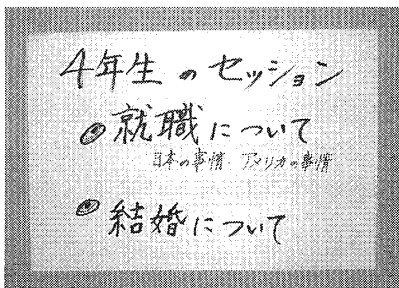 4年生のセッション
◎就職について
日本の事情・アメリカの事情
◎結婚について